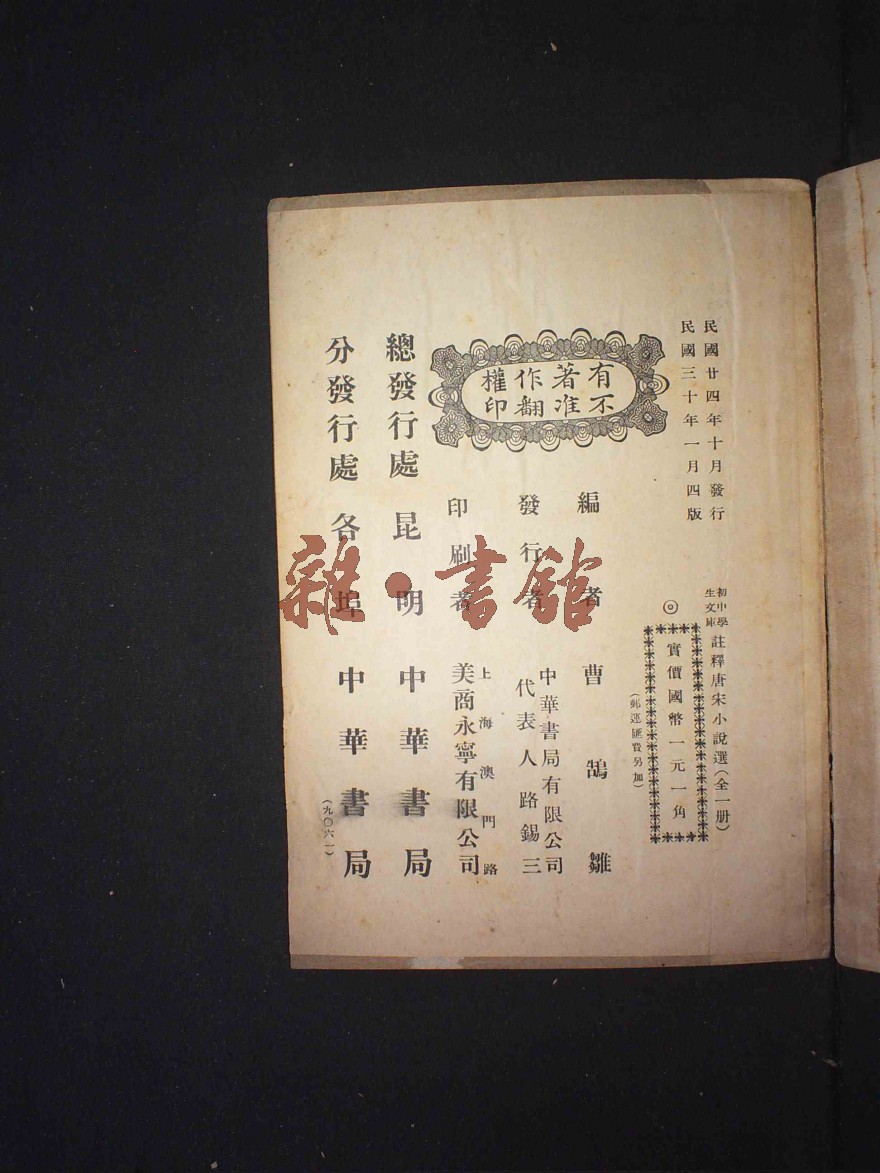 民國廿四年十月發行
民國三十年一月四版
初中學
生文庫
註釋唐宋小說選（全一册）
◎
實價國幣一元一角
（郵運匯費另加）
有不
著准
作翻
權印
編者 曹鵠雛
發行者 中華書局有限公司
代表人路錫三
印刷者 上海澳門路
美商永寧有限公司
總發行處 昆明中華書局
分發行處 各埠中華書局
（九〇六一）
雜·書館